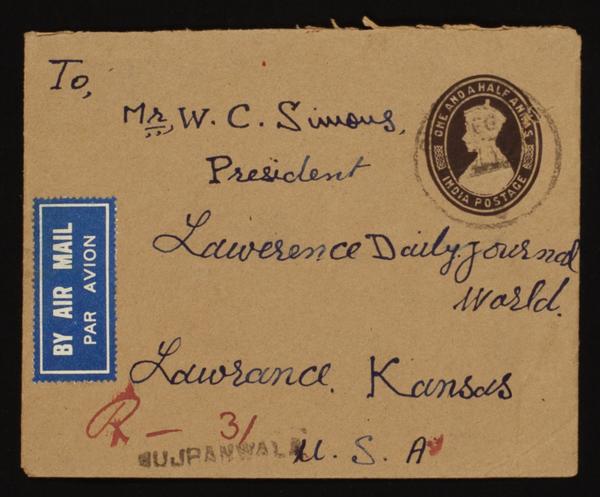 To,
Mr, W. C. Simons,
President
Lawerence Daily Journal
World.
Lawrance. Kansas
U. S. A
ONE AND A HALF ANNAS
INDIA POSTAGE
BY AIR MAIL
PAR AVION
R - 3/